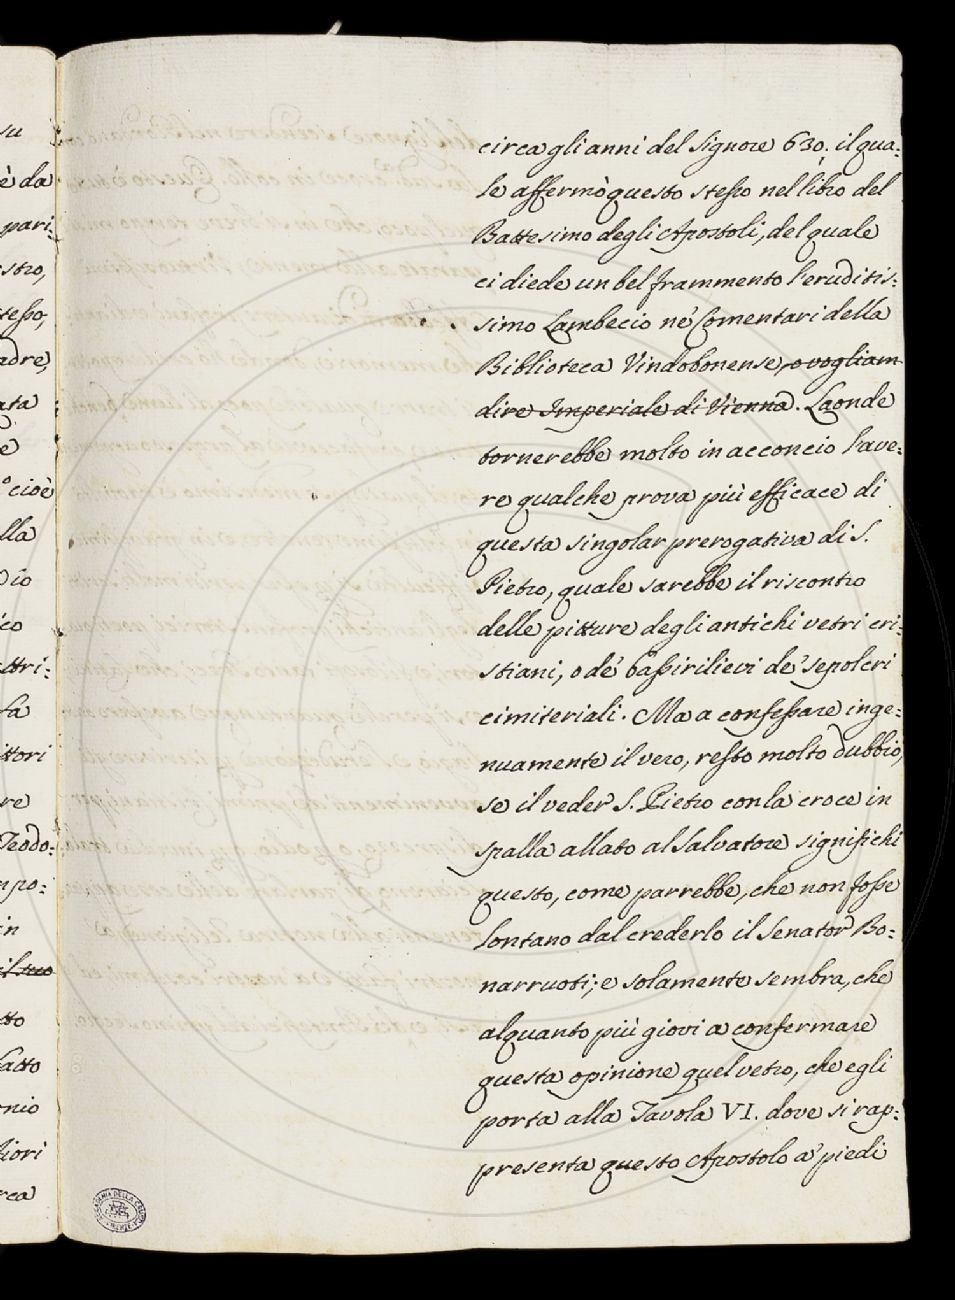 circa gli anni del Signore 630. il qua:
le affermò questo stesso nel libro del
Battesimo degli Apostoli, del quale
ci diede un bel frammento l'eruditis:
simo Lambecio ne' Comentari della
Biblioteca Vindobonense, o vogliam
dire Imperiale di Vienna. Laonde
tornerebbe molto in acconcio l'ave:
re qualche prova più efficace di
questa singolar prerogativa di S.
Pietro, quale sarebbe il riscontro
delle pitture degli antichi vetri cri:
stiani, o de' bassirilievi de' sepolcri
cimiteriali. Ma a confessare inge:
nuamente il vero, resto molto dubbio,
se il veder S. Pietro con la croce in
spalla allato al Salvatore significhi
questo, come parrebbe, che non fosse
lontano dal crederlo il Senator Bo:
narruoti; e solamente sembra, che
alquanto più giovi a confermare
questa opinione quel vetro, che egli
porta alla Tavola VI. dove si rap:
presenta questo Apostolo a' piedi
su
è da
pari:
stro,
tesso,
adre,
ata
e
cioè
lla
io
co
ttri:
fa
ttori
re
Teodo:
mpo:
in
il suo
tto
fatto
nio
liori
rea